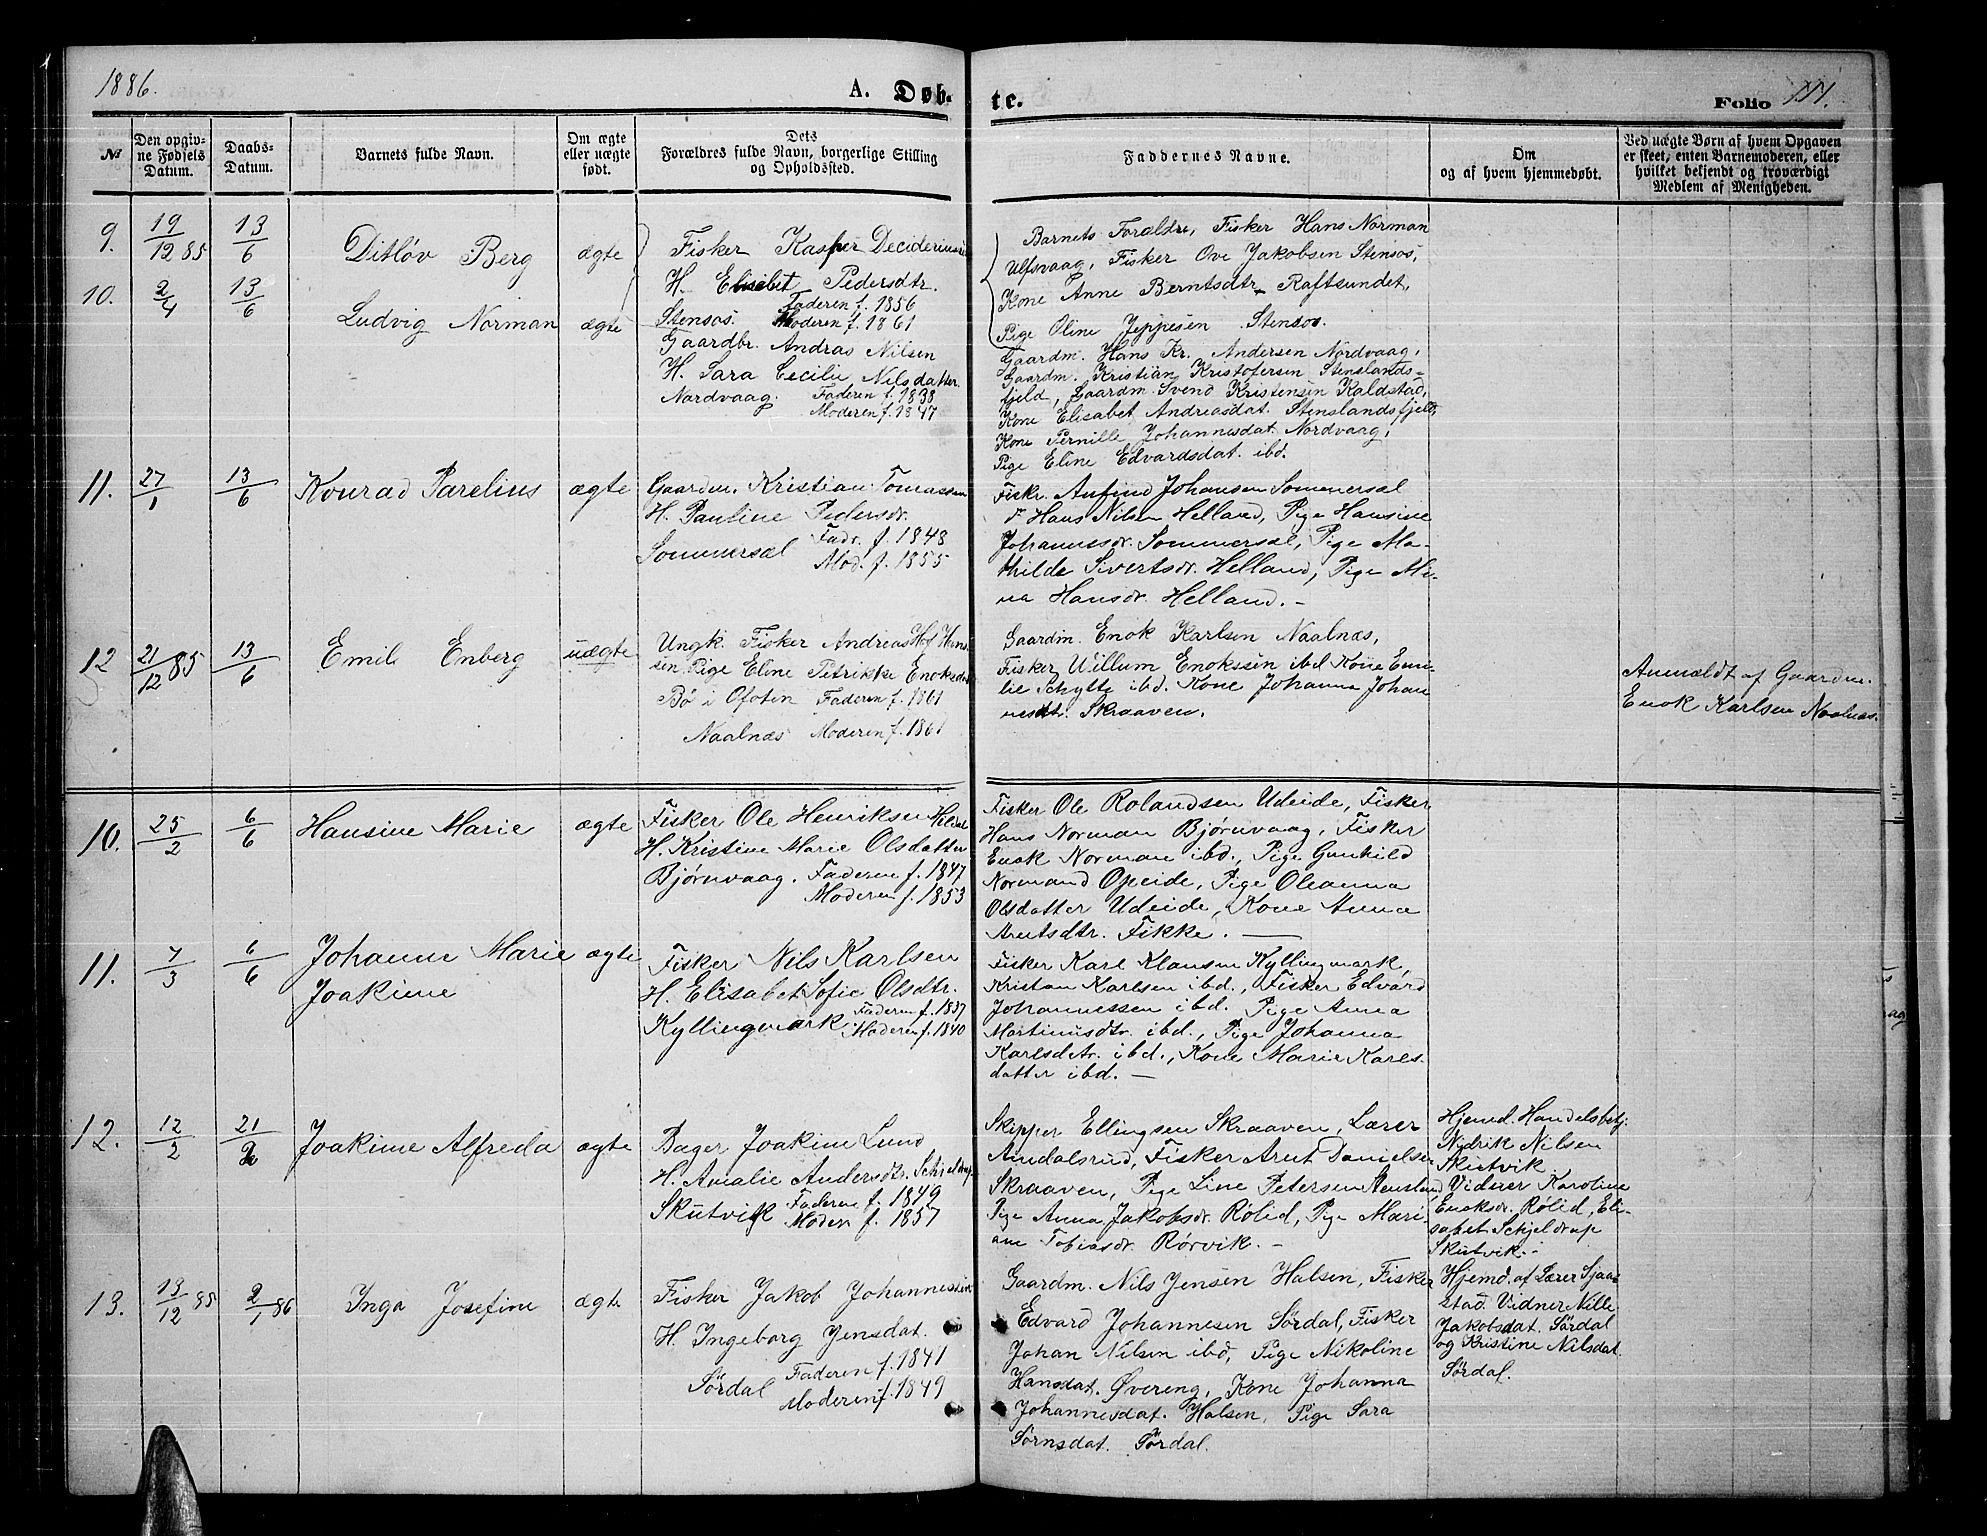 1886.
A. Døb-
te.
Folio 151.
№
Den opgiv-
ne Fødsels
Datum.
Daabs-
Datum.
Barnets fulde Navn.
Om ægte
eller uægte
født.
Dets
Forældres fulde Navn, borgerlige Stilling
og Opholdssted.
Faddernes Navne.
Om
og af hvem hjemmedøbt.
Ved uægte Børn af hvem Opgaven
er skeet, enten Barnemoderen, eller
hvilket bekjendt og troværdigt
Medlem af Menigheden.
9. 19/12 85 13/6 Ditløv Berg ægte
Fisker Kasper Desideriussen
H. Elisebet Pedersdtr.
Faderen f. 1856
Stensøs. Moderen f. 1861
Barnets Foraldre, Fisker Hans Norman
Ulfsvaag, Fisker Ove Jakobsen Stensøs,
Kone Anne Berntsdtr Raftsundet,
Pige Oline Jeppesen Stensøs.
10. 2/4 13/6 Ludvig Norman ægte
Gaardbr. Andras Nilsen
H. Sara Cecilie Nilsdatter
Nordvaag. Faderen f. 1838
Moderen f. 1847
Gaardm. Hans Kr. Andersen Nordvaag,
Gaardm. Kristian Kristofersen Stenslands-
fjeld, Gaardm Svend Kristensen Kaldstad,
Kone Elisabet Andreasdat. Stenslandsfjeld,
Kone Pernille Johannesdat. Nordvaag,
Pige Eline Edvardsdat. ibd.
11. 27/1 13/6 Konrad Parelius ægte
Gaardm. Kristian Tomassen
H. Pauline Pedersdr.
Fadr. f. 1848
Sommersæl Mod. f. 1855
Fiskr. Anfind Johansen Sommersæl
F Hans Nilsen Helland, Pige Hansine
Johannesdr. Sommersæl, Pige Ma-
thilde Sivertsdr. Helland, Pige Mi-
na Hansdr. Helland. -
12 21/12 85 13/6 Emil Enberg uægte
Ungk. Fisker Andreas Hof Han-
sen. Pige Eline Petrikke Enoksdat
Bø i Ofoten Faderen f. 1861
Naalnæs Moderen f. 1861
Gaardm. Enok Karlsen Naalnæs,
Fisker Willum Enoksen ibd Kone Emi-
lie Schytte ibd. Kone Johanna Johan
nesdt. Skraaven.
Anmældt af Gaardm.
Enok Karlsen Naalnæs.
10. 25/2 6/6 Hansine Marie ægte
Fisker Ole Henriksen Heldal
H. Kristine Marie Olsdatter
Bjørnvaag. Faderen f. 1847
Moderen f. 1853
Fisker Ole Rolandsen Udeide, Fisker
Hans Norman Bjørnvaag, Fisker
Enok Norman ibd., Pige Gunhild
Normand Opeide, Pige Oleanna
Olsdatter Udeide, Kone Anna
Arntsdtr. Fikke. —
11. 7/3 6/6 Johanne Marie ægte
Joakime
Fisker Nils Karlsen
H. Elisabet Sofie Olsdtr.
Faderen f. 1837
Kyllingmark Moderen f. 1840
Fisker Karl Klausen Kyllingmark,
Kristan Karlsen ibd., Fisker Edvard
Johannessen ibd. Pige Anna
Martinusdtr. ibd., Pige Johanna
Karlsdtr. ibd., Kone Marie Karls
datter ibd. —
12. 12/2 21/2 Joakime Alfreda ægte
Bager Joakim Lund
H. Amalie Andersdtr. Schjeldrup
Faderen f. 1849
Skutvik Moder f. 1857
Skipper Ellingsen Skraaven, Lærer
Amdalsrud, Fisker Arnt Danielsen
Skraaven, Pige Line Petersen Stensland
Pige Anna Jakobsdr. Rølid, Pige Mari-
ane Tobiasdr. Rørvik. -
Hjemd. Handelsbetj.
Nydrik Nilsen
Skutvik
Vidner Karoline
Enoksdr. Rølid, Eli-
sabet Schjeldrup
Skutvik. -
13. 13/12 85 2/1 86 Inga Josefine ægte
Fisker Jakob Johannessen
H. Ingeborg Jensdat.
Faderen f. 1841
Sørdal Moderen f. 1849
Gaardm. Nils Jensen Halsen, Fisker
Edvard Johannesen Sørdal, Fisker
Johan Nilsen ibd, Pige Nikoline
Hansdat. Øvereng, Kone Johanna
Johannesdat. Halsen, Pige Sara
Sørnsdat. Sørdal.
Hjemd. af Lærer Sjaa-
stad. Vidner Nille
Jakobsdat. Sørdal
og Kristine Nilsdat.
Sørdal.